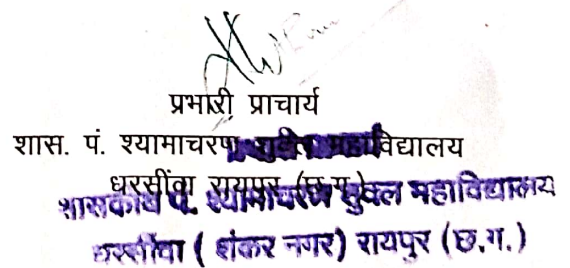 प्रभारी प्राचार्य
शास. पं. श्यामाचरण शुक्ल महाविद्यालय
धरसींवा रायपुर (छ.ग.)
शासकीय पं. श्यामाचरण शुक्ल महाविद्यालय
धरसींवा ( शंकर नगर) रायपुर (छ.ग.)